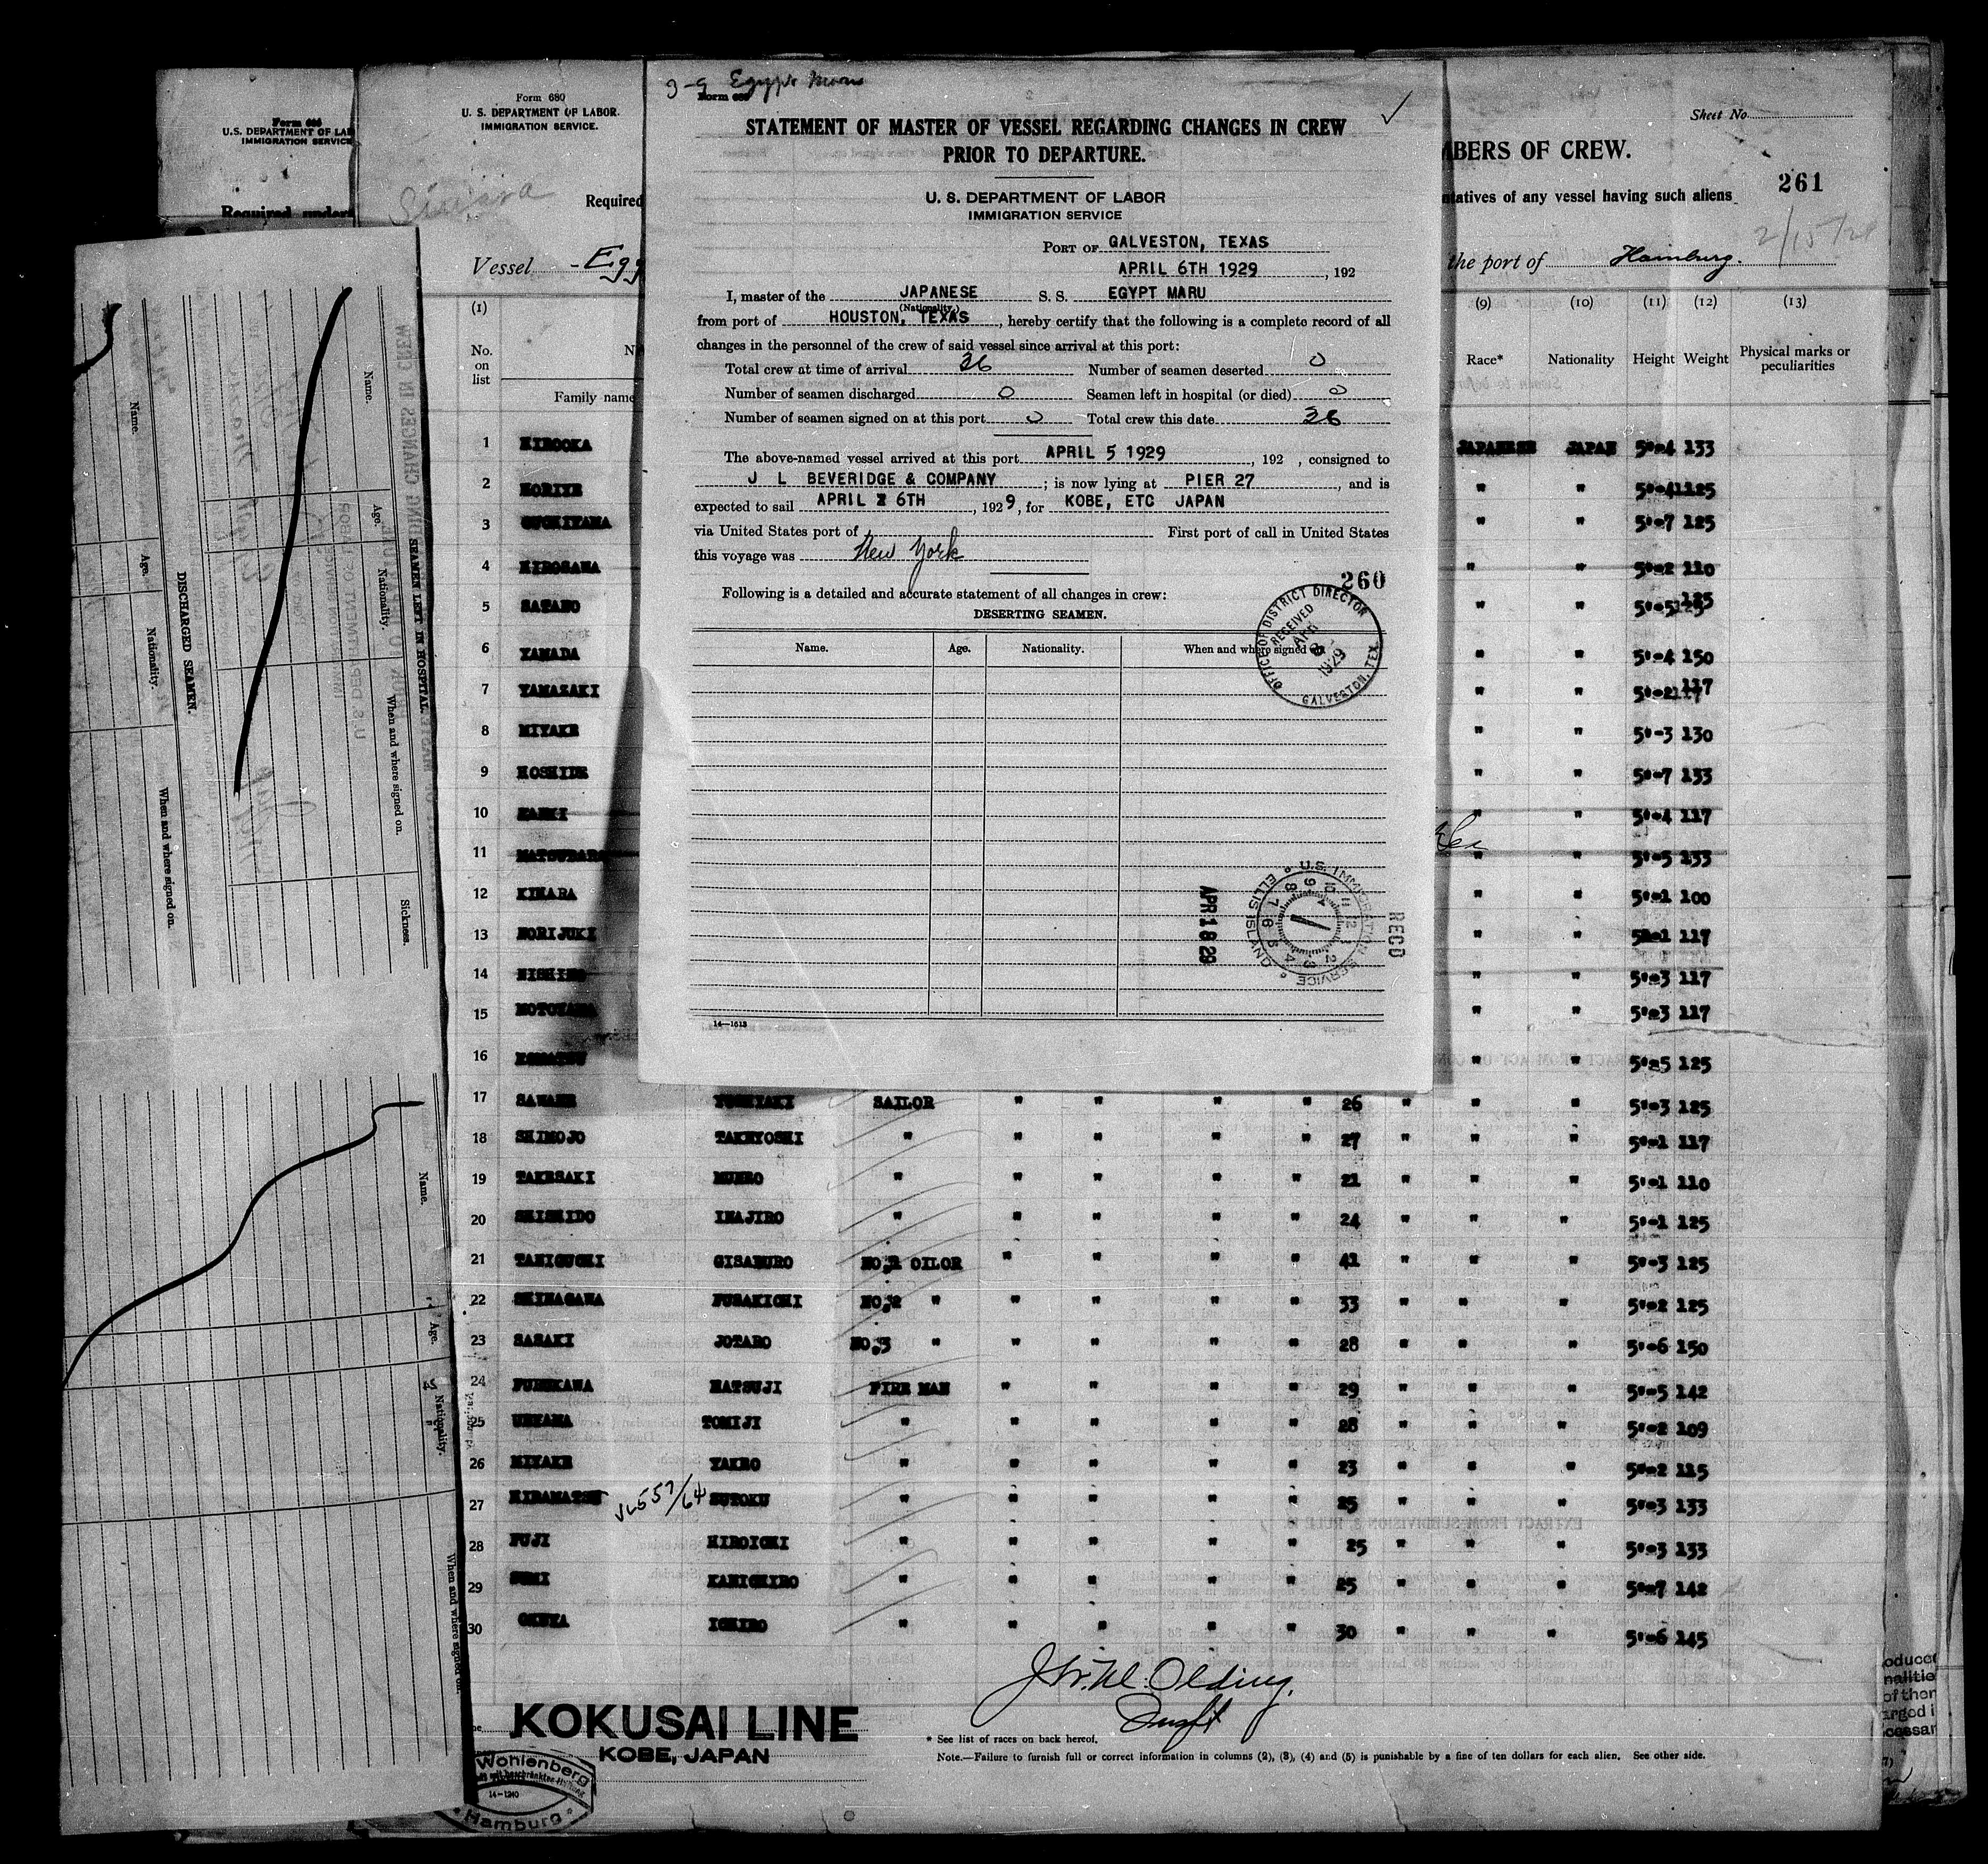 3-9 Egypt Maru
Form 689
STATEMENT OF MASTER OF VESSEL REGARDING CHANGES IN CREW
PRIOR TO DEPARTURE.
U. S. DEPARTMENT OF LABOR
IMMIGRATION SERVICE
PORT OF GALVESTON, TEXAS
APRIL 6TH 1929, 192
I, master of the JAPANESE S. S. EGYPT MARU
(Nationality)
from port of HOUSTON, TEXAS, hereby certify that the following is a complete record of all
changes in the personnel of the crew of said vessel since arrival at this port:
Total crew at time of arrival 36 Number of seamen deserted 0
Number of seamen discharged 0 Seamen left in hospital (or died) 0
Number of seamen signed on at this port 0 Total crew this date 36
The above-named vessel arrived at this port APRIL 5 1929, 192 , consigned to
J L BEVERIDGE & COMPANY; is now lying at PIER 27, and is
expected to sail APRIL 6TH, 1929, for KOBE, ETC JAPAN
via United States port of First port of call in United States
this voyage was New York
260
Following is a detailed and accurate statement of all changes in crew:
DESERTING SEAMEN.
Name. Age. Nationality. When and where signed on.
OFFICE OF DISTRICT DIRECTOR
RECEIVED
APR 6 1929
GALVESTON, TEX.
U.S. IMMIGRATION SERVICE
ELLIS ISLAND
RECD
APR 18 29
14—1613
Form 680
U. S. DEPARTMENT OF LABOR.
IMMIGRATION SERVICE.
Required
Vessel
Sheet No
MBERS OF CREW.
261
ntatives of any vessel having such aliens
2/15/29
the port of Hamburg.
(1) (9) (10) (11) (12) (13)
No. on list Family name Race* Nationality Height Weight Physical marks or peculiarities
1 HIROOKA JAPANESE JAPAN 5'-4 133
2 NORIYE " " 5'-4 125
3 " " 5'-7 125
4 HIROSAWA " " 5'-2 110
5 SATAKO " " 5'-5 125
6 YAMADA " " 5'-4 150
7 YAMASAKI " " 5'-2 117
8 MIYAKE " " 5'-3 130
9 HOSHIDE " " 5'-7 133
10 " " 5'-4 117
11 MATSUBARA " " 5'-5 133
12 " " 5'-1 100
13 NORIJUKI " " 5'-1 117
14 " " 5'-3 117
15 MOTOYAMA " " 5'-3 117
16 " " 5'-5 125
17 SAWABE YOSHIAKI SAILOR " " " " 26 " " " 5'-3 125
18 SHIMOJO TAKEYOSHI " " " " " 27 " " " 5'-1 117
19 TAKESAKI " " " " " 21 " " " 5'-1 110
20 SHISHIDO IMAJIRO " " " " " 24 " " " 5'-1 125
21 TANIGUCHI GISABURO NO.1 OILOR " " " " 41 " " " 5'-3 125
22 SHINAGAWA FUSAKICHI NO.2 " " " " " 33 " " " 5'-2 125
23 SASAKI JOTARO NO.3 " " " " " 28 " " " 5'-6 150
24 FURUKAWA HATSUJI FIRE MAN " " " " 29 " " " 5'-5 142
25 UEYAMA TOMIJI " " " " " 28 " " " 5'-2 109
26 MIYAKE YAKEO " " " " " 23 " " " 5'-2 115
27 HIRAMATSU SUTOKU " " " " " 25 " " " 5'-3 133
28 FUJI HIROICHI " " " " " 25 " " " 5'-3 133
29 SUMI KANICHIRO " " " " " 25 " " " 5'-7 142
30 OKUYA ICHIRO " " " " " 30 " " " 5'-6 145
KOKUSAI LINE
KOBE, JAPAN
* See list of races on back hereof.
Note.—Failure to furnish full or correct information in columns (2), (3), (4) and (5) is punishable by a fine of ten dollars for each alien. See other side.
Wohlenberg
14-1240
Hamburg
U.S. DEPARTMENT OF LAB
IMMIGRATION SERVICE
Required under
SEAMEN LEFT IN HOSPITAL.
Name. Age. Nationality. When and where signed on. Sickness.
DISCHARGED SEAMEN.
Name. Age. Nationality. When and where signed on.
Name. Age. Nationality. When and where signed on.